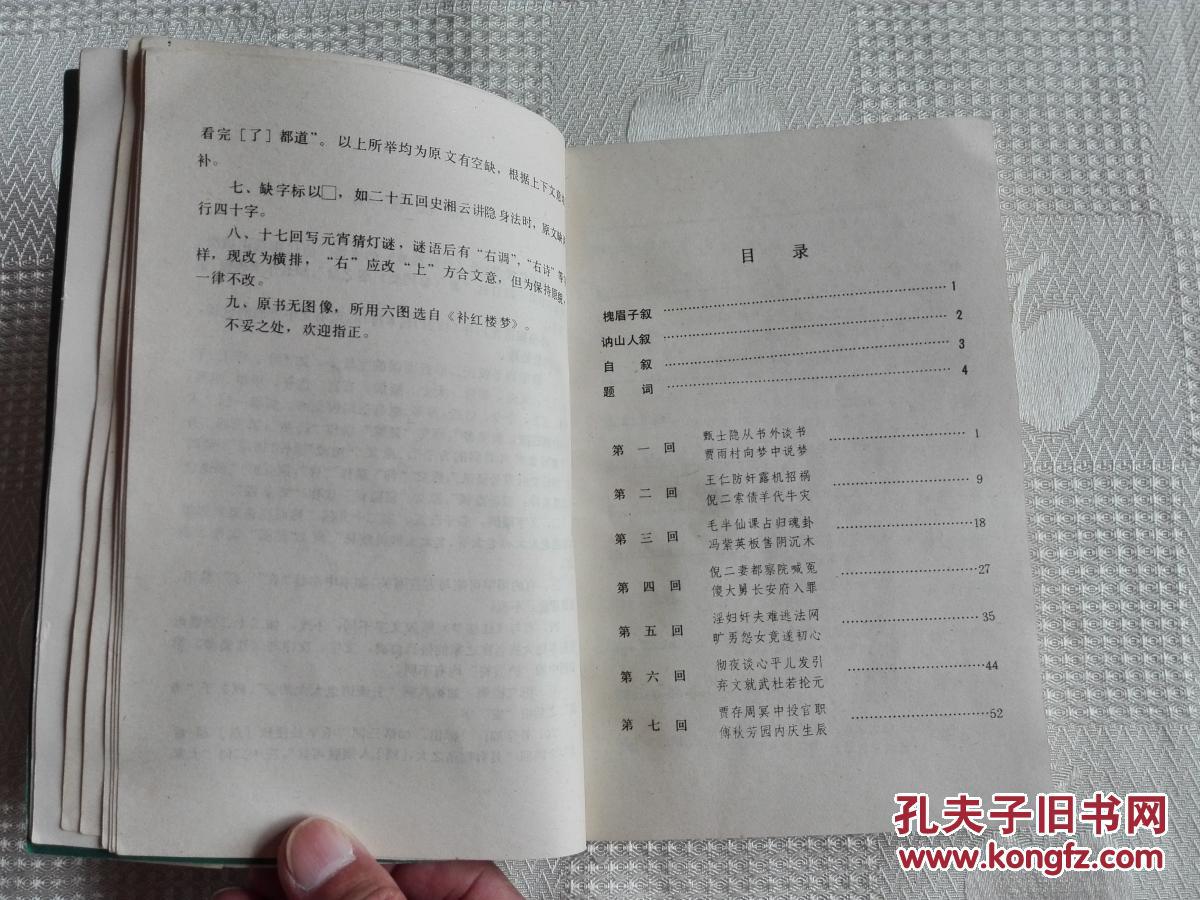 看完［了］都道”。以上所举均为原文有空缺，根据上下文意
补。
七、缺字标以□，如二十五回史湘云讲隐身法时，原文缺
行四十字。
八、十七回写元宵猜灯谜，谜语后有“右调”，“右诗”等
样，现改为横排，“右”应改“上”方合文意，但为保持原貌，
一律不改。
九、原书无图像，所用六图选自《补红楼梦》。
不妥之处，欢迎指正。
目 录
槐眉子叙 1
讷山人叙 2
自 叙 3
题 词 4
第一回 甄士隐从书外谈书 1
贾雨村向梦中说梦
第二回 王仁防奸露机招祸 9
倪二索债羊代牛灾
第三回 毛半仙课占归魂卦 18
冯紫英板售阴沉木
第四回 倪二妻都察院喊冤 27
傻大舅长安府入罪
第五回 淫妇奸夫难逃法网 35
旷男怨女竟遂初心
第六回 彻夜谈心平儿发引 44
弃文就武杜若抡元
第七回 贾存周冥中授官职 52
傅秋芳园内庆生辰
孔夫子旧书网
www.kongfz.com